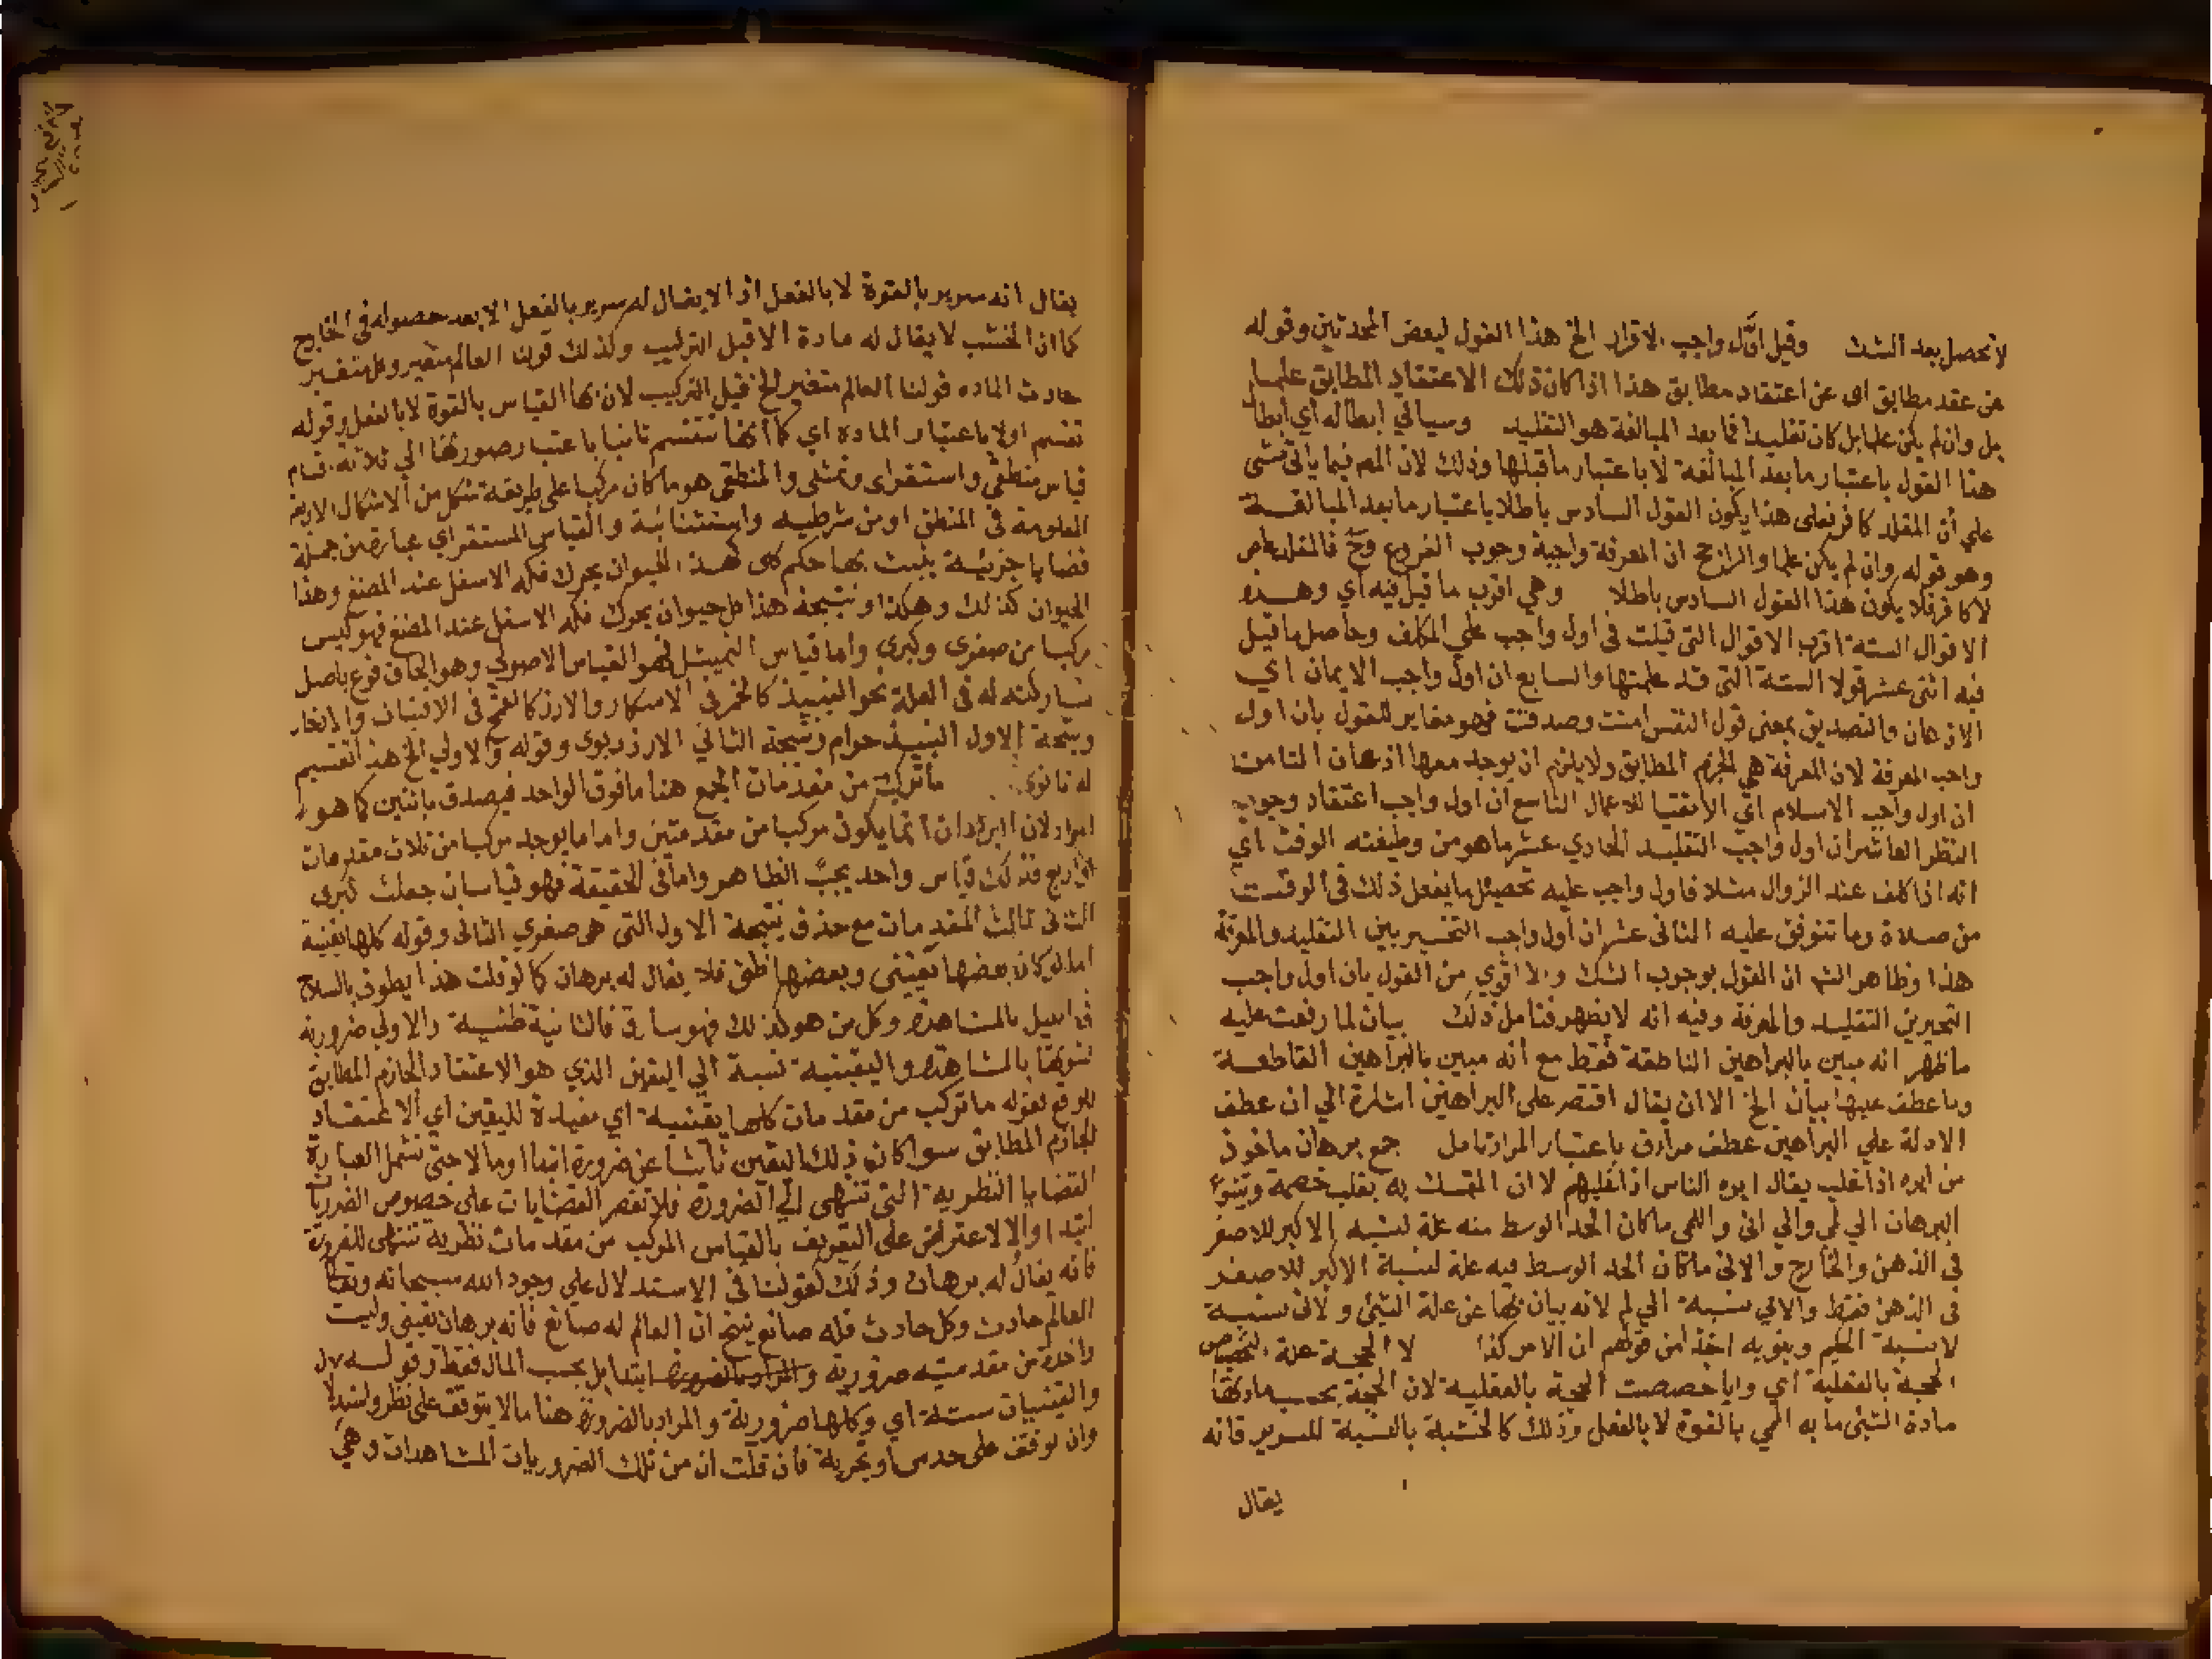 لا تحصل بعد الشك وقيل ان اول واجب الاقرار الخ هذا القول لبعض المحدثين وقوله
عن عقد مطابق اى عن اعتقاد مطابق هذا اذا كان ذلك الاعتقاد المطابق علما
بل وان لم يكن علما بل كان تقليدا فما بعد المبالغة هو التقليد وسياتي ابطاله اي ابطال
هذا القول باعتبار ما بعد المبالغة لا باعتبار ما قبلها وذلك لان المص فيما ياتى مشى
علي أن المقلد كافر فعلى هذا يكون القول السادس باطلا باعتبار ما بعد المبالغة
وهو قوله وان لم يكن علما والراجح ان المعرفة واجبة وجوب الفروع وح فالمقلد عاص
لا كافر فلا يكون هذا القول السادس باطلا وهي اقرب ما قيل فيه اي وهذه
الاقوال الستة اقرب الاقوال التى قيلت فى اول واجب علي المكلف وحاصل ما قيل
فيه اثنى عشر قولا الستة التى قد علمتها والسابع ان اول واجب الايمان اي
الاذعان والتصديق بمعنى قول النفس امنت وصدقت فهو مغاير للقول بان اول
واجب المعرفة لان المعرفة هي الجزم المطابق ولا يلزم ان يوجد معها اذعان الثامن
ان اول واجب الاسلام اي الانقياد للاعمال التاسع ان اول واجب اعتقاد وجوب
النظر العاشر ان اول واجب التقليد الحادي عشر ما هو من وظيفته الوقت اي
انه اذا كلف عند الزوال مثلا فاول واجب عليه تحصيل ما يفعل ذلك فى الوقت
من صلاة وما تتوقف عليه الثانى عشر ان اول واجب التخيير بين التقليد والمعرفة
هذا وظاهر الش ان القول بوجوب الشك والا اقوي من القول بان اول واجب
التخيير بين التقليد والمعرفة وفيه انه لا يظهر فتامل ذلك بيان لما رفعت عليه
ما ظهر انه مبين بالبراهين الناطقة فقط مع انه مبين بالبراهين القاطعة
وما عطف عليها بيان الخ الا ان يقال اقتصر على البراهين اشارة الي ان عطف
الادلة علي البراهين عطف مرادف باعتبار المراد تامل جمع برهان ماخوذ
من ابره اذا غلب يقال ابره الناس اذا غلبهم لان المتمسك به يغلب خصمه ويتنوع
البرهان الي لمي والي انى واللمى ما كان الحد الوسط منه علة لنسبة الاكبر للاصغر
فى الذهن والخارج والانى ما كان الحد الوسط فيه علة لنسبة الاكبر للاصغر
فى الذهن فقط والاني نسبة الي لم لانه بيان بها عن علة الشئ و لانى نسبة
لا نسبة الحكم وبثبوته اخذا من قولهم ان الامر كذا لا الحجة علة لتخصيص
الحجة بالعقلية اي وانما خصصت الحجة بالعقلية لان الحجة بحسب مادتها
مادة الشئ ما به الشي بالقوة لا بالفعل وذلك كالخشبة بالنسبة للسرير فانه
يقال
يقال انه سرير بالقوة لا بالفعل اذ الا يقال له سرير بالفعل الا بعد حصوله فى الخارج
كما ان الخشب لا يقال له مادة الا قبل التركيب وكذلك قولنا العالم متغير وكل متغير
حادث الماده قولنا العالم متغير الخ قبل التركيب لان بها القياس بالقوة لا بالفعل وقوله
تقسم اولا باعتبار الماده اي كما أنها تنقسم ثانيا باعتبار صورتها الي ثلاثة اقسام
قياس منطقي واستقراى وتمثلى والمنطقى هو ما كان مركبا على طريقة شكل من الاشكال الاربعة
المعلومة فى المنطق او من شرطيه واستثنائية والقياس المستقراى عبارة عن جملة
قضايا جزئية يثبت بها حكم كلى كهذا الحيوان يحرك فكه الاسفل عند المضغ وهذا
الحيوان كذلك وهكذا ونتيجة هذا كل حيوان يحرك فكه الاسفل عند المضغ فهو ليس
مركبا من صغرى وكبري واما قياس التمثيل فهو القياس الاصولي وهو الحاق فرع باصل
لمشاركته له فى العلة نحو النبيذ كالخمر فى الاسكار والارز كالقمح فى الاقتيات والادخار
ونتيجة الاول النبيذ حرام ونتيجة الثاني الارز ربوى وقوله والاولي الخ هذا تقسيم
له ثانوى ما تركب من مقدمات الجمع هنا ما فوق الواحد فيصدق باثنين كما هو
المراد لان البرهان انما يكون مركبا من مقدمتين واما ما يوجد مركبا من ثلاث مقدمات
او اربع فذلك قياس واحد بحسب الظاهر واما فى الحقيقة فهو قياسان جعلت كبرى
الثانى ثالث المقدمات مع حذف نتيجة الاول التى هى صغري الثانى وقوله كلها يقينية
اما لو كان بعضها يقينى وبعضها ظنى فلا يقال له برهان كما لو قلت هذا يطوف بالسلاح
فى الليل بالمشاهدة وكل من هو كذلك فهو سارق فالثانية ظنية والاولي ضرورية
لثبوتها بالمشاهدة واليقينية نسبة الي اليقين الذي هو الاعتقاد الجازم المطابق
للواقع فقوله ما تركب من مقدمات كلها يقينية اي مفيدة لليقين اي الاعتقاد
الجازم المطابق سوا كان ذلك اليقين ناشئا عن ضرورة ابتدا او مالا حتى تشمل العبارة
القضايا النظرية التى تنتهى الي الضرورة فلا تقصر القضايات على خصوص الضرورية
ابتدا والا لاعترض على التعريف بالقياس المركب من مقدمات نظرية تنتهى للضرورة
فانه يقال له برهان وذلك كقولنا فى الاستدلال علي وجود الله سبحانه وتعالى
العالم حادث وكل حادث فله صانع ينتج ان العالم له صانع فانه برهان يقينى وليست
واحدة من مقدمتيه ضرورية والمراد بالضرورة ابتدا بل بحسب المال فقط وقوله
واليقينيات ستة اي وكلها ضرورية والمراد بالضرورة هنا ما لا يتوقف على نظر واستدلال
وان توقف على حدس او تجربة فان قلت ان من تلك الضروريات المشاهدات وهي